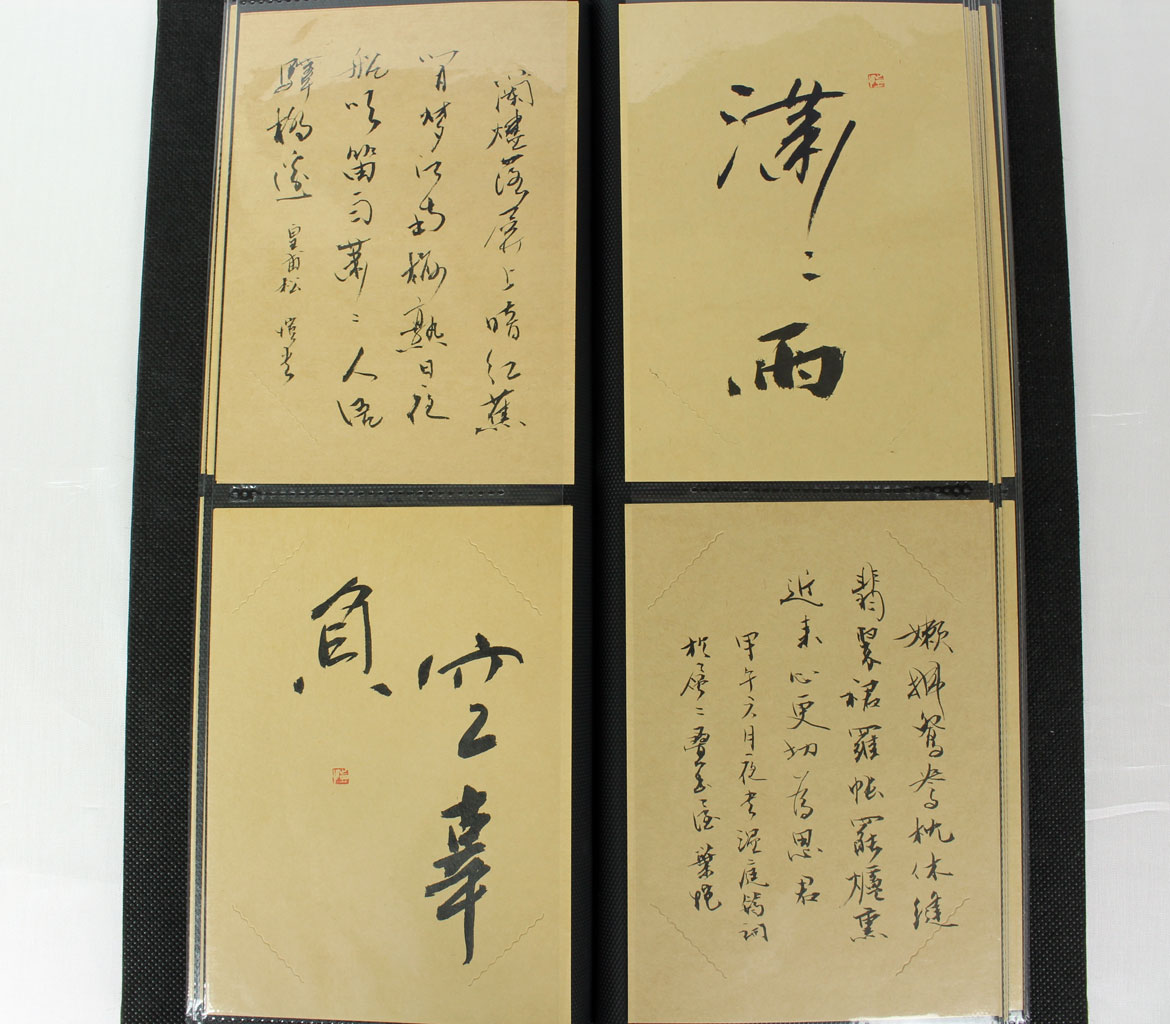 瀟〻雨
蘭燼落屏上暗紅蕉
閒夢江南梅熟日夜
船吹笛雨蕭〻人語
驛橋邊 皇甫松 愷书
嬾拂鴛鴦枕休縫
翡翠裙羅帳罷爐熏
近来心更切為思君
甲午六月夜书温庭筠詞
於層〻疊 葉愷
空辜
負